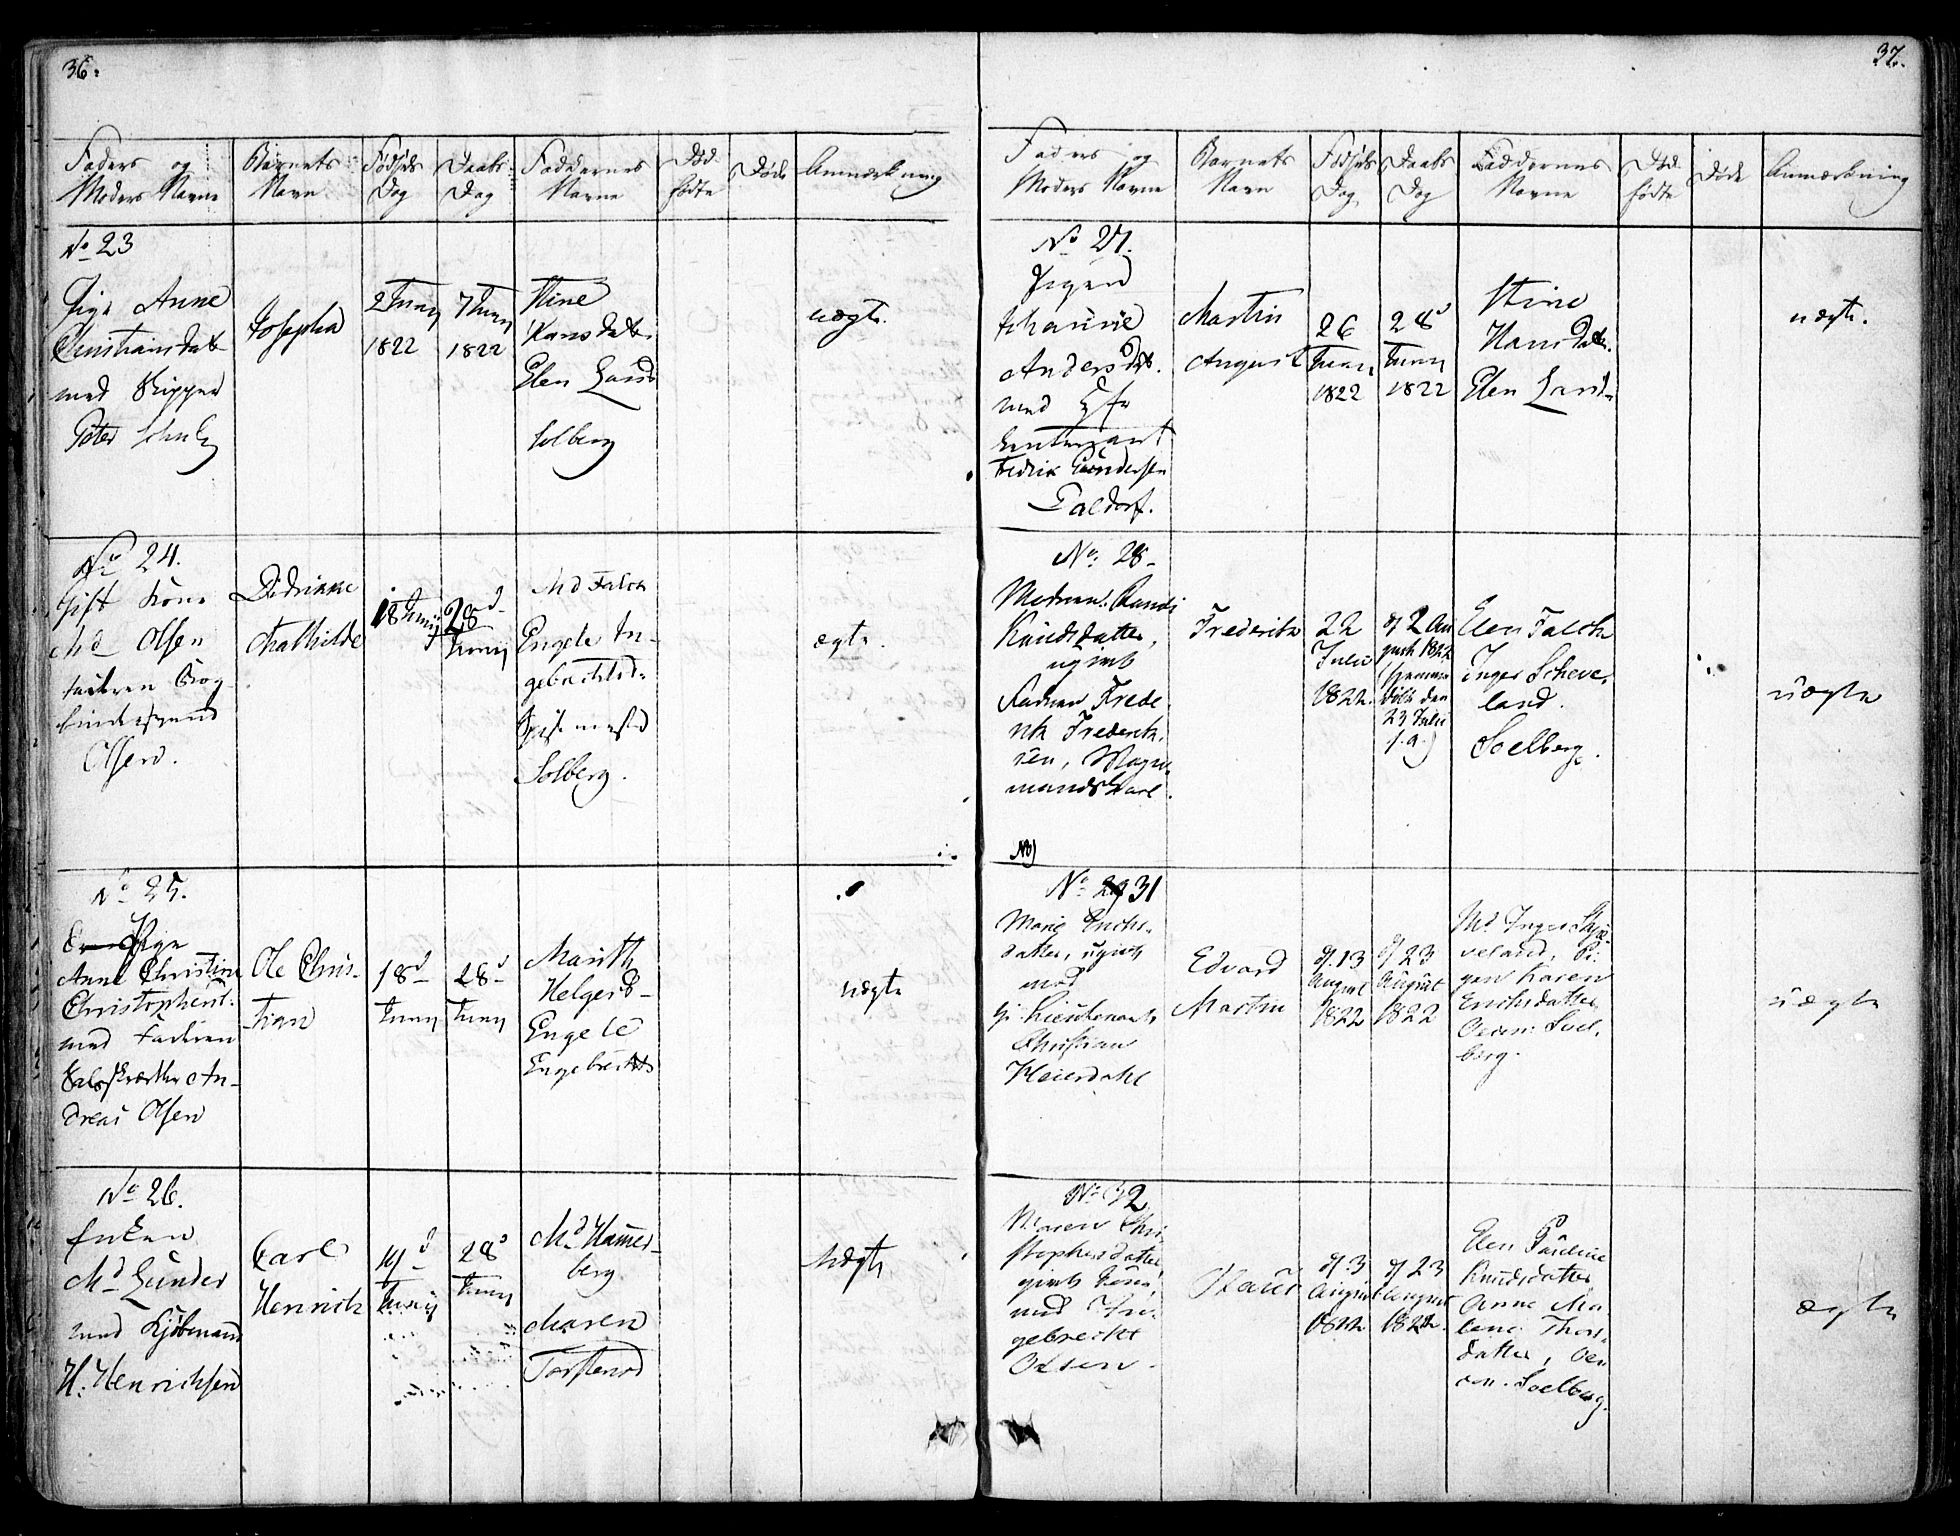 36.
Faders og
Moders Navne
Barnets
Navn
Fødsels
Dag
Daabs
Dag
Faddernes
Navne
Død
fødte
Døde
Anmærkning
No 23
Pige Anne
Christiansdat
med Skipper
Peter Schultz
Josepha
2 Juny
1822
7 Juny
1822
Stine
Hansdat.
Elen Lands
Solberg
uægte.
No 24.
Gift Kone
Md Olsen
faderen Bog
binder svend
Olsen.
Didrikke
Mathilde
18 Juny
28d
Juny
Md Falch
Engele In-
gebrechtsd.
Solberg.
ægte.
No 25.
Pige
Anne Christine
Christophersd.
med Faderen
An-
dreas Olsen
Ole Chris-
tian
18d
Juny
28d
Juny
Marith
Helgesd-
Engele
Engebrectsd
uægte
No 26.
Enken
Md Gunder
med Kjøbmand
H. Henrichsen
Carl
Henrich
19d
Juny
28d
Juny
Md Hammer-
berg
Maren
Torstensd
uægte
37.
Faders og
Moders Navne
Barnets
Navn
Fødsels
Dag
Daabs
Dag
Faddernes
Navne
Død
fødte
Døde
Anmærkning
No 27.
Pigen
Johanne
Andersdt.
med
Lentenant
Fedrik Gundersen
Paldorf.
Martin
August
26
Juny
1822
28d
Juny
1822
Stine
Hansdatt.
Elen Land-
uægte.
No. 28-
Modren: Randi
Knudsdatter,
ugivt
Fadren Frede-
rik Frederik-
sen, Vogn-
mandskarl.
Frederik
22
Julii
1822.
d 2 Au
gust 1822
(hjemme
døbt den
23 Julii
s. a.)
Elen Falch
Inger Scheve-
land.
Soelberg.
uægte
NB)
No 29) 31
Marie Erichs-
datter, ugivt
med
Lieutenant
Christian
Heierdahl
Edvard
Martin
d. 13
August
1822
d 23
August
1822
Md Inger Skje-
veland, Pi-
gen Karen
Erichsdatter
Soel-
berg.
uægte
No 32
Maren Chri-
stophersdatter
givt kone
med In-
gebrecht
Olsen.
d. 3
August
1822
d 23
August
1822.
Elen Pauline
Knudsdatter
Anne Ma-
lene Thors-
datter,
Soelberg.
ægte